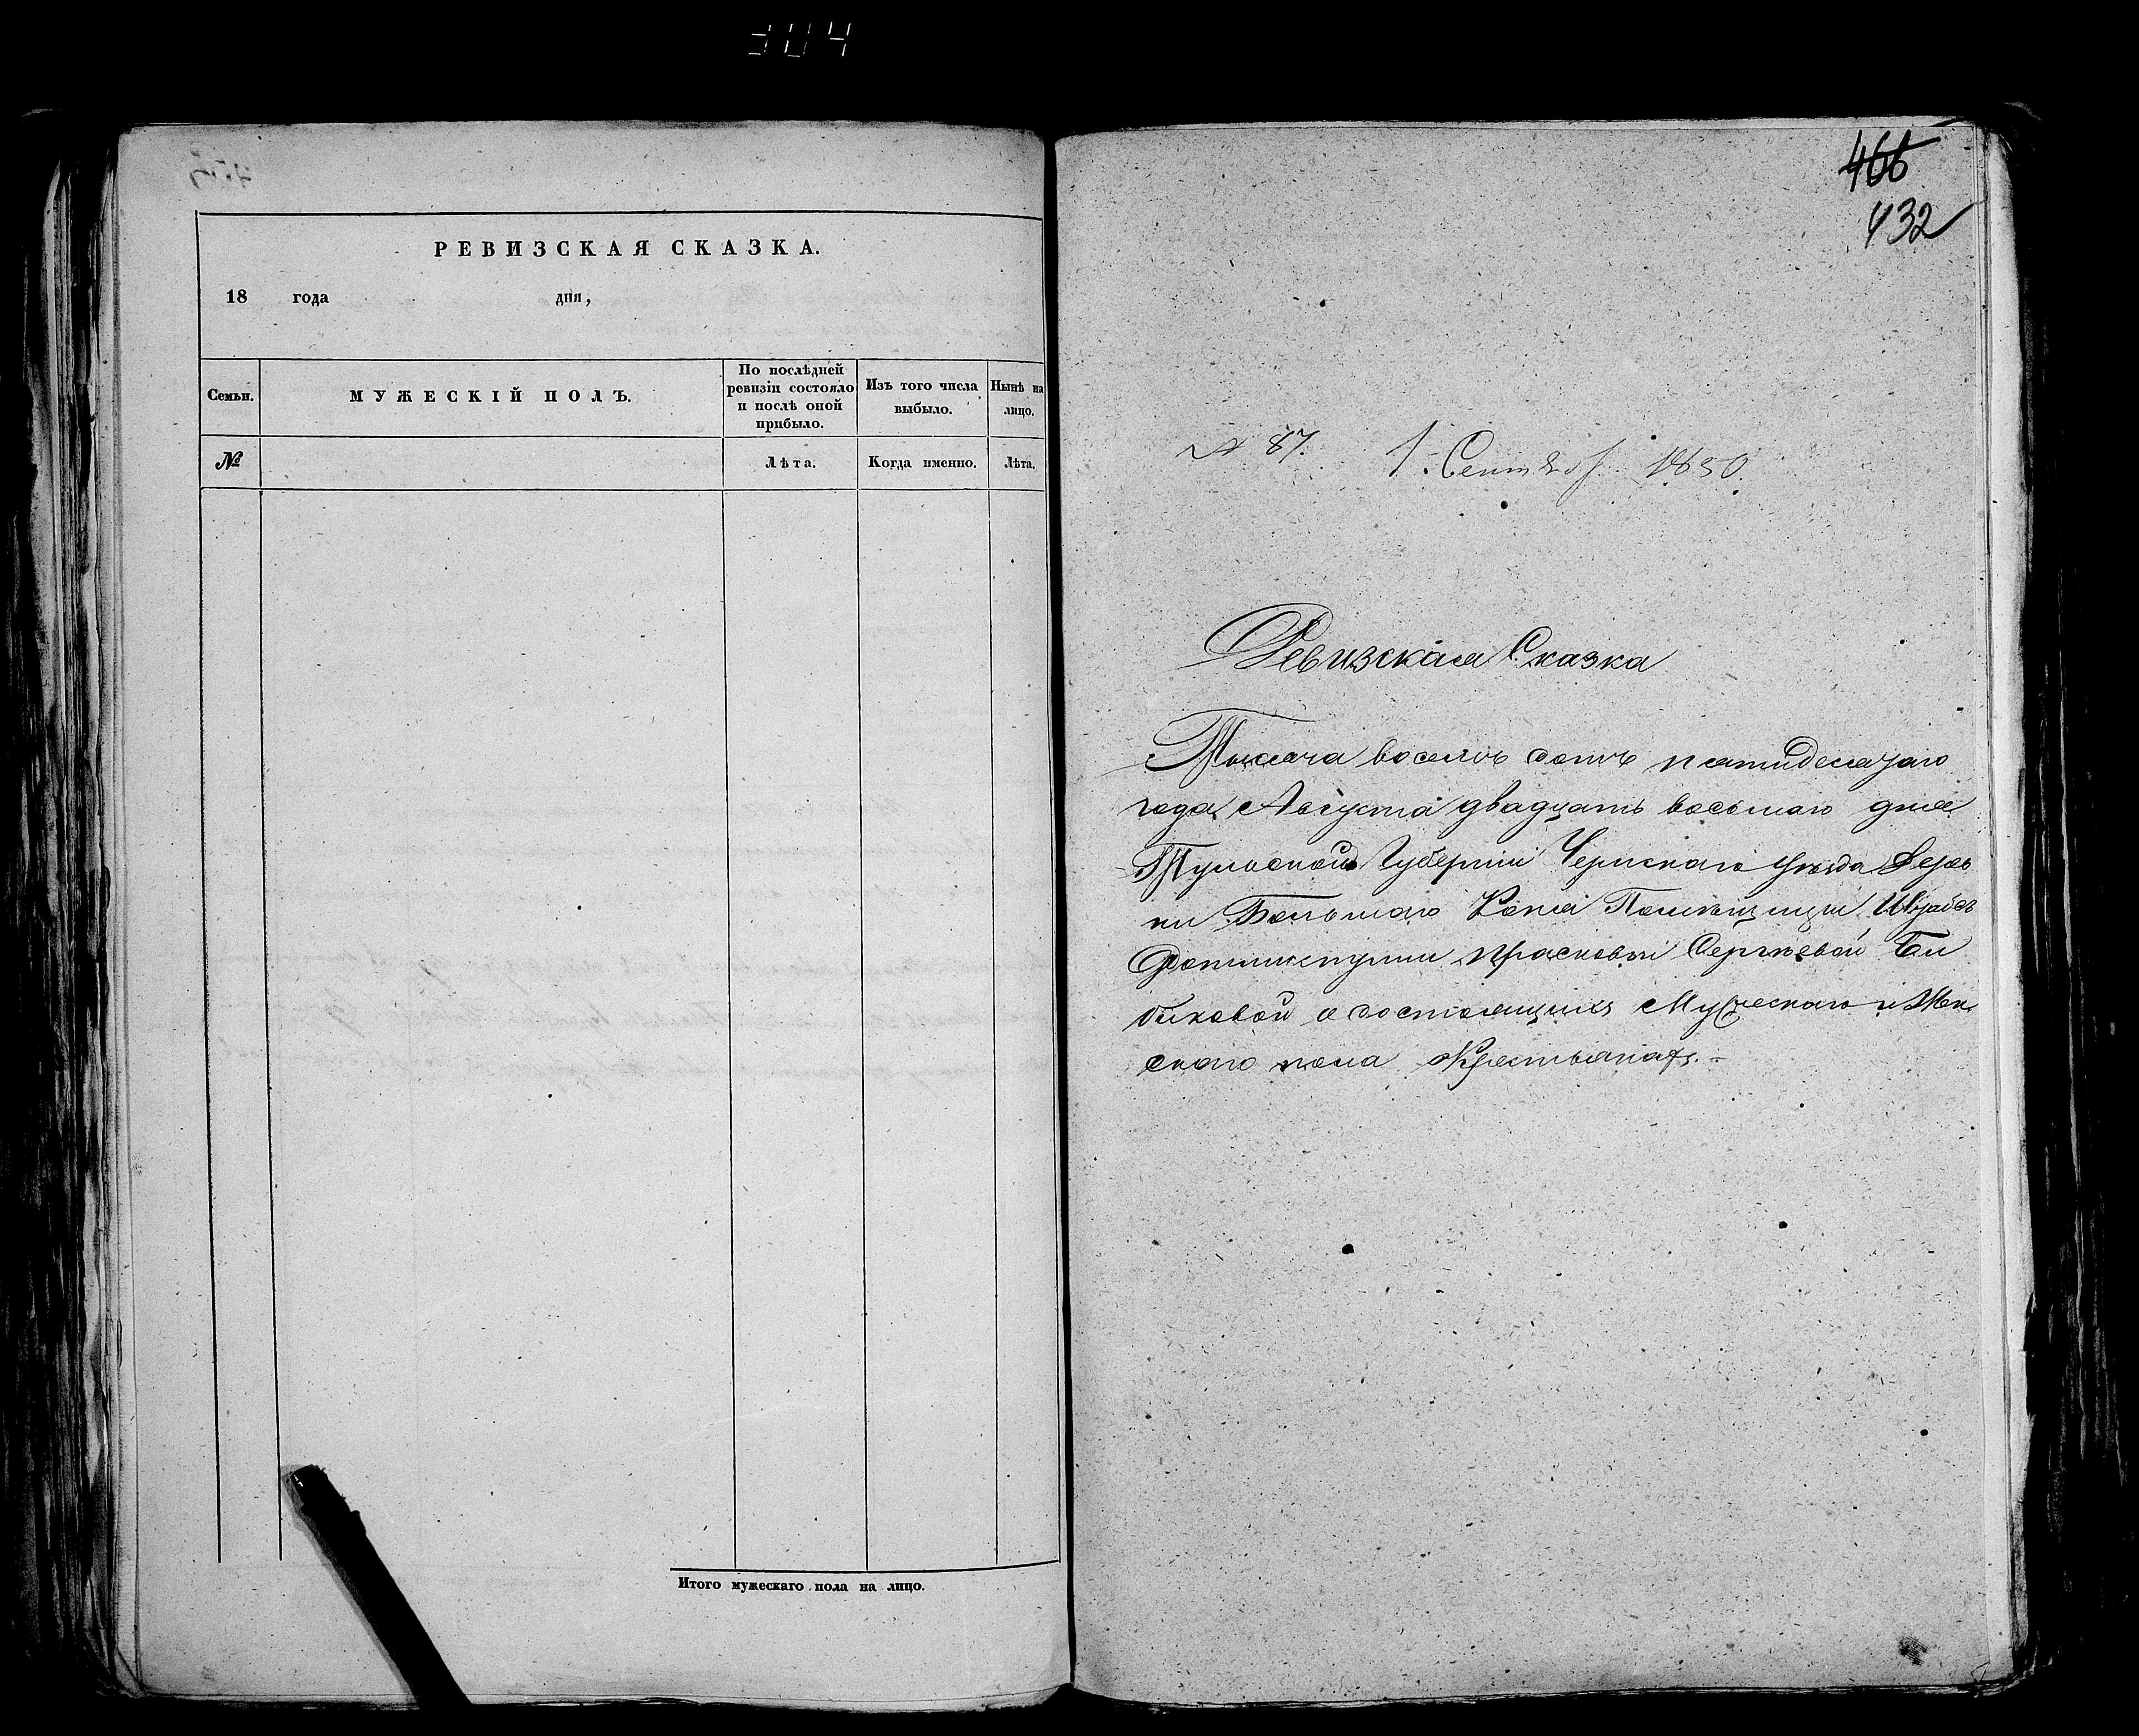 РЕВИЗСКАЯ СКАЗКА.
18 года дня,
Семьи.
МУЖЕСКІЙ ПОЛЪ.
По послѣдней
ревизіи состояло
и послѣ оной
прибыло.
Изъ того числа
выбыло.
Нынѣ на
лицо.
№
Лѣта.
Когда именно.
Лѣта.
Итого мужескаго пола на лицо.
466
432
№ 87. 1. Сентяб. 1850.
Ревизская Сказка
Тысяча восемь сотъ пятидесятаго
года Августа двадцать восьмаго дня
Тульской Губерніи Чернскаго уѣзда Дерев
ни Большаго Помѣщицы
Прасковьи Сергѣевой Би
биковой о состоящихъ Мужескаго и Жен
скаго пола Крестьянахъ.